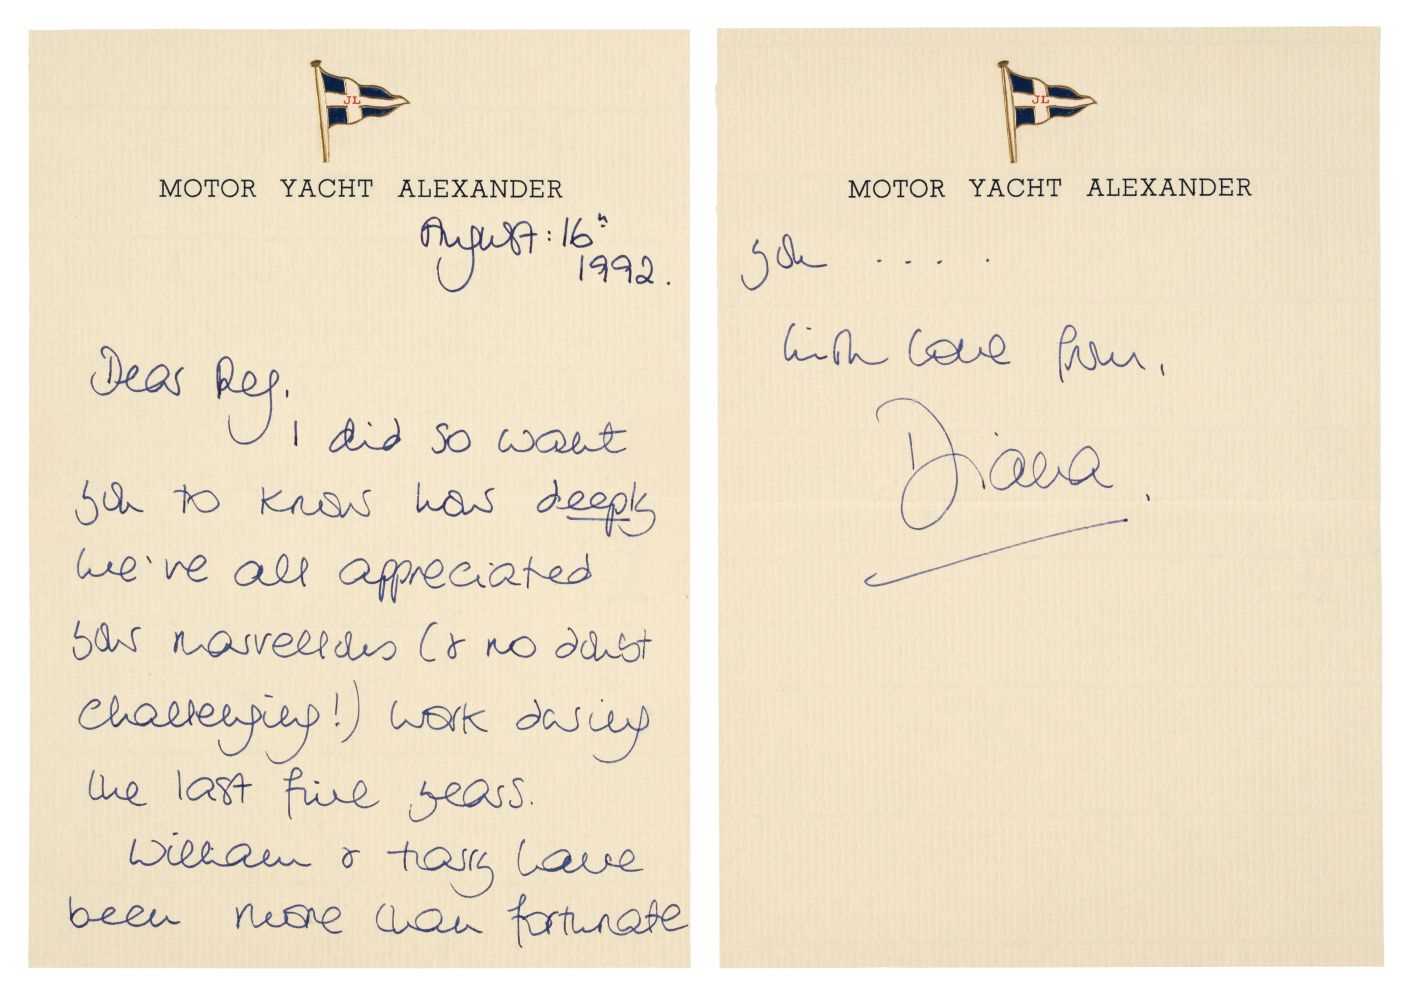 JL
MOTOR YACHT ALEXANDER
August: 16th
1992.
Dear Reg.
I did so want
you to know how deeply
we've all appreciated
your marvellous (& no doubt
challenging!) work during
the last five years.
William & Harry have
been more than fortunate
JL
MOTOR YACHT ALEXANDER
you ....
with love from,
Diana.